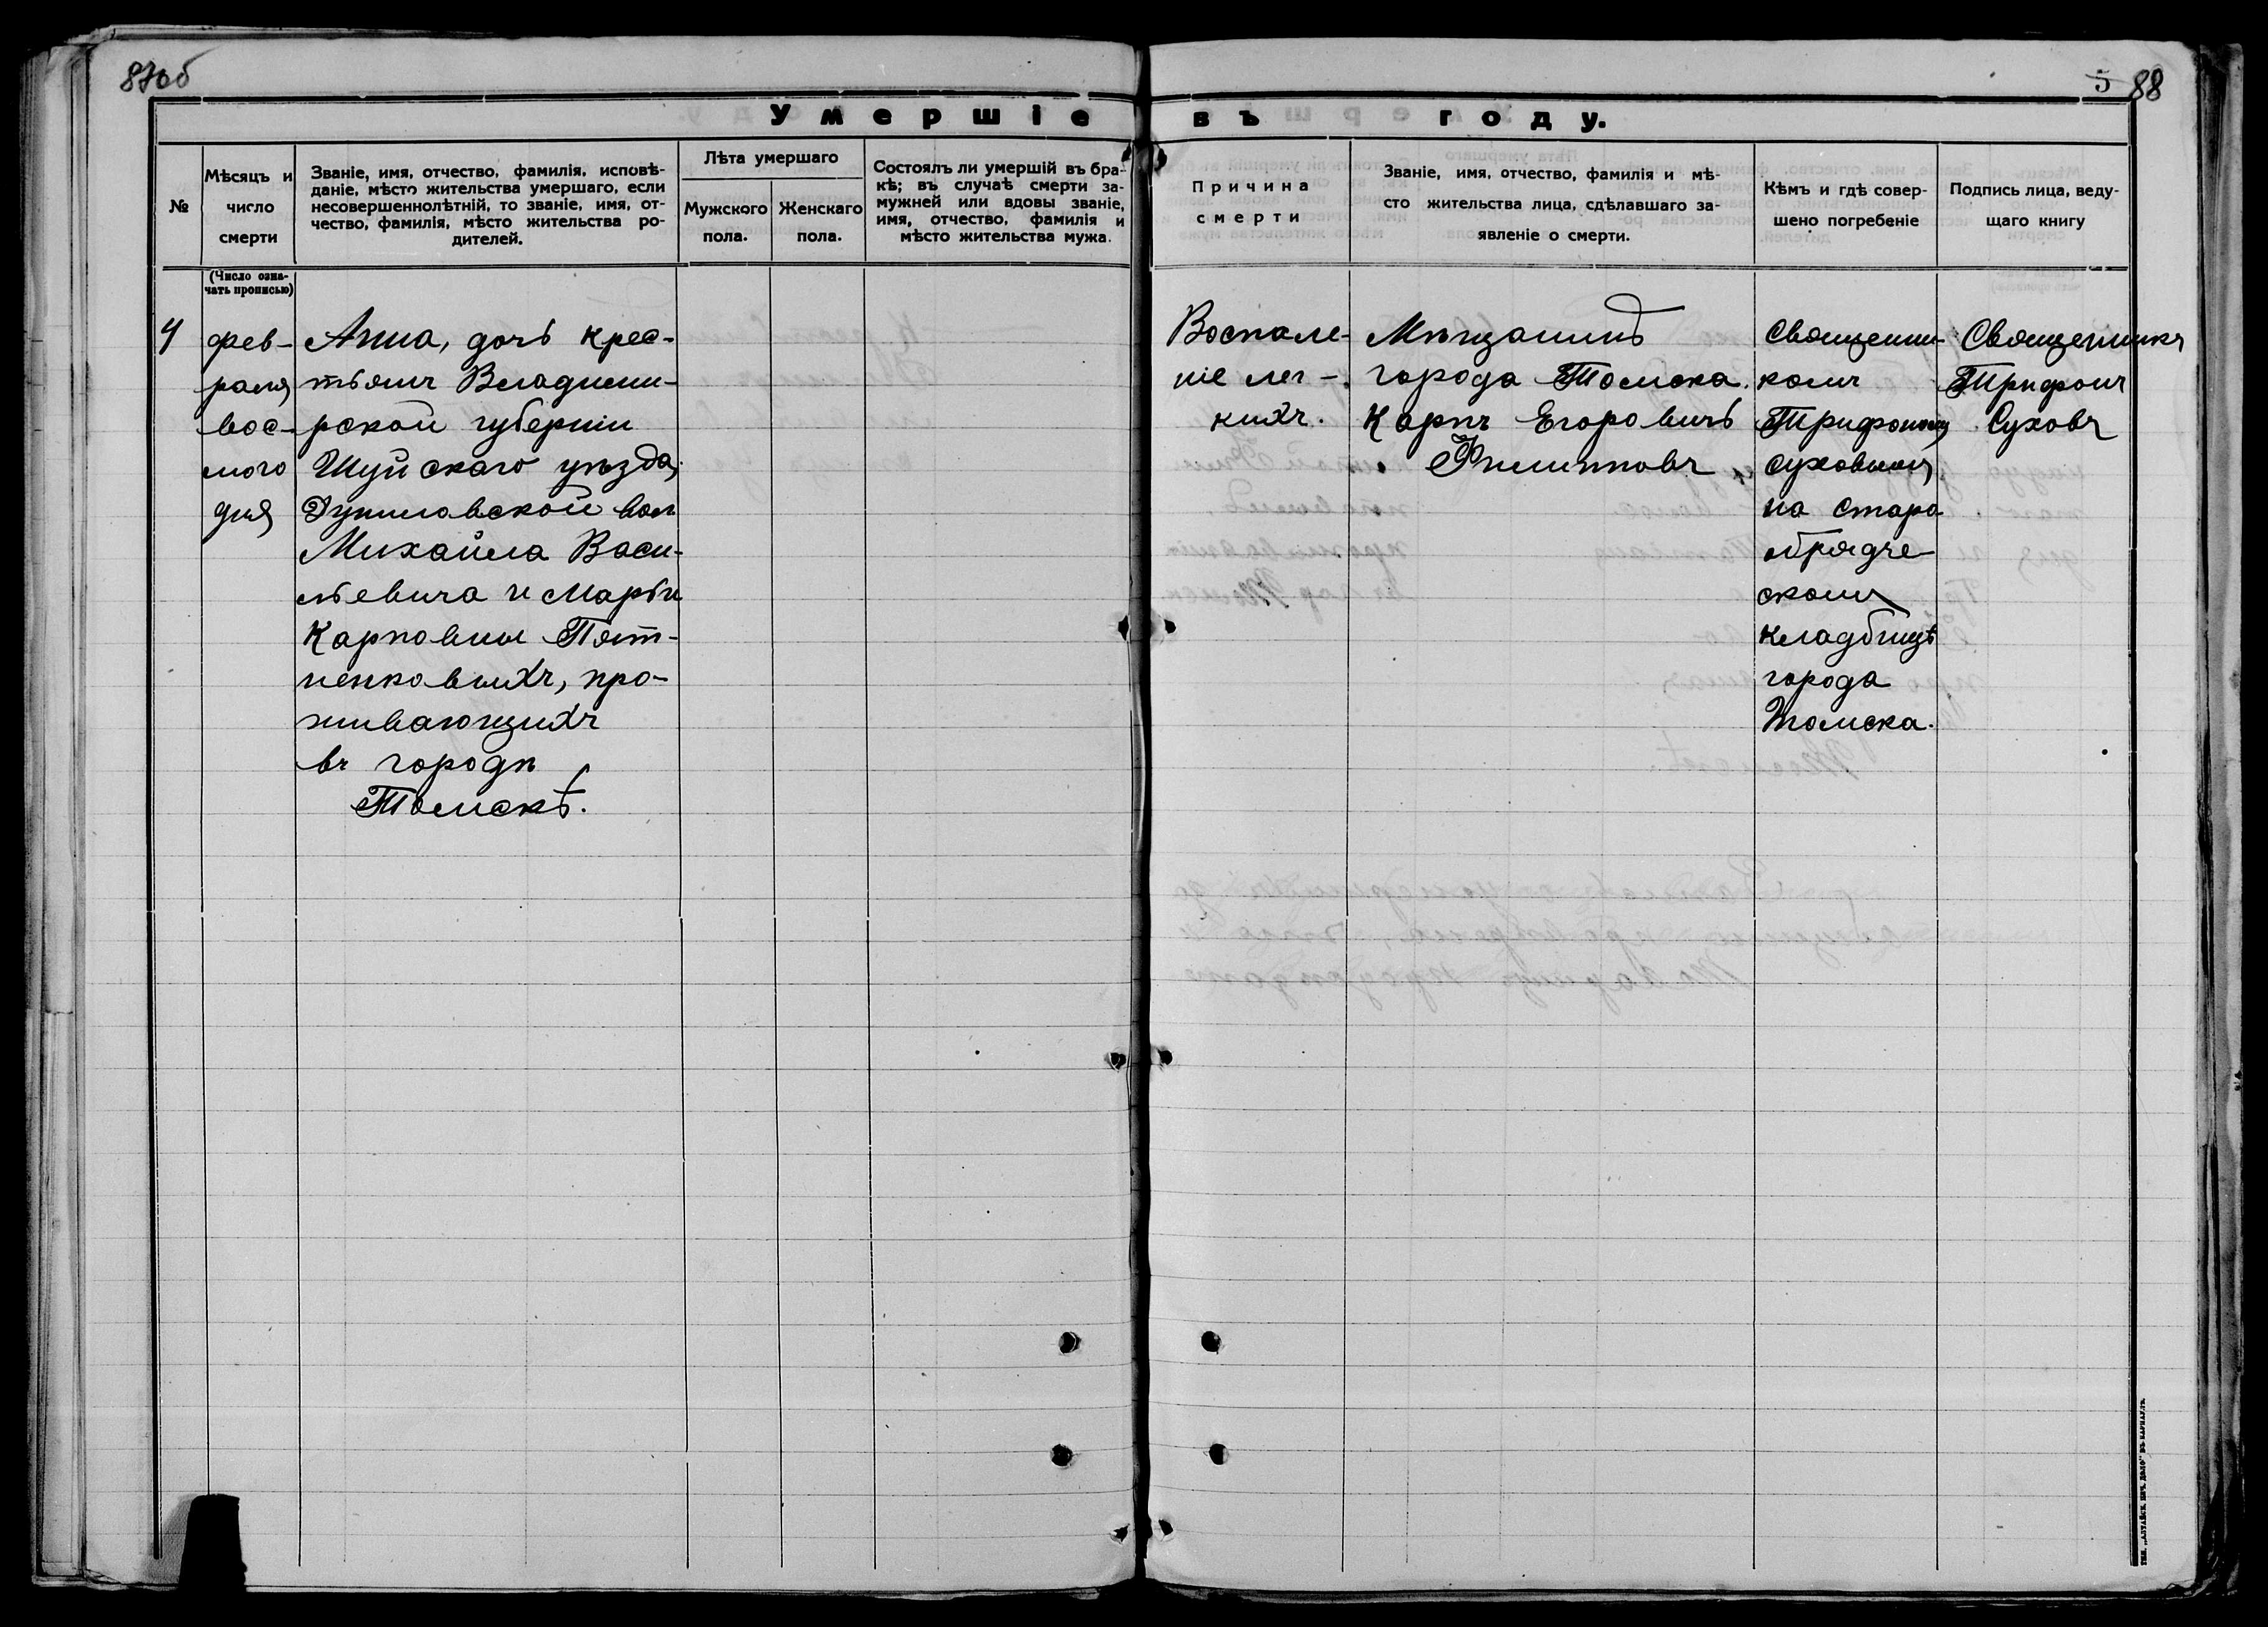 87об
5 88
Умершіе въ году.
№
Мѣсяцъ и
число
смерти
Званіе, имя, отчество, фамилія, исповѣ-
даніе, мѣсто жительства умершаго, если
несовершеннолѣтній, то званіе, имя, от-
чество, фамилія, мѣсто жительства ро-
дителей.
Лѣта умершаго
Мужского
пола.
Женскаго
пола.
Состоялъ ли умершій въ бра-
кѣ; въ случаѣ смерти за-
мужней или вдовы званіе,
имя, отчество, фамилія и
мѣсто жительства мужа.
Причина
смерти
Званіе, имя, отчество, фамилія и мѣ-
сто жительства лица, сдѣлавшаго за-
явленіе о смерти.
Кѣмъ и гдѣ совер-
шено погребеніе
Подпись лица, веду-
щаго книгу
(Число озна-
чать прописью)
4
фев-
раля
вос-
мого
дня
Анна, дочь крес-
тьянъ Владими-
рской губерніи
Шуйскаго уѣзда,
Дуниловской вол
Михаила Васи-
льевича и Марьи
Карповны Пят-
ненковыхъ, про-
живающихъ
въ городѣ
Томскѣ.
Воспале-
ніе лег-
кихъ.
Мѣщанинъ
города Томска.
Карпъ Егоровичъ
Филипповъ
Священни-
комъ
Трифономъ
Суховымъ,
на старо
обрядче
скомъ
кладбищѣ
города
Томска.
Священникъ
Трифонъ
Суховъ
ТИП. „АЛТАЙСК. ПЕЧ. ДѢЛО" ВЪ БАРНАУЛѢ